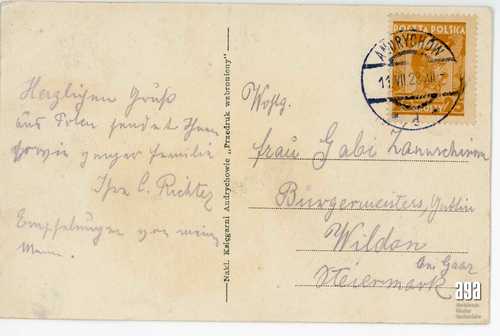 Herzlichen Gruß
aus Polen sendet Ihnen
sowie ganzer Familie
Ihre C. Richter
Empfehlungen von mein
Mann.
Nakl. Księgarni Andrychowie „Przedruk wzbroniony"
POCZTA POLSKA
ANDRYCHÓW
11 VII 28
d
Wohlg.
Frau Gabi
Bürgermeisters
Wildon
bei Graz
Steiermark
aga